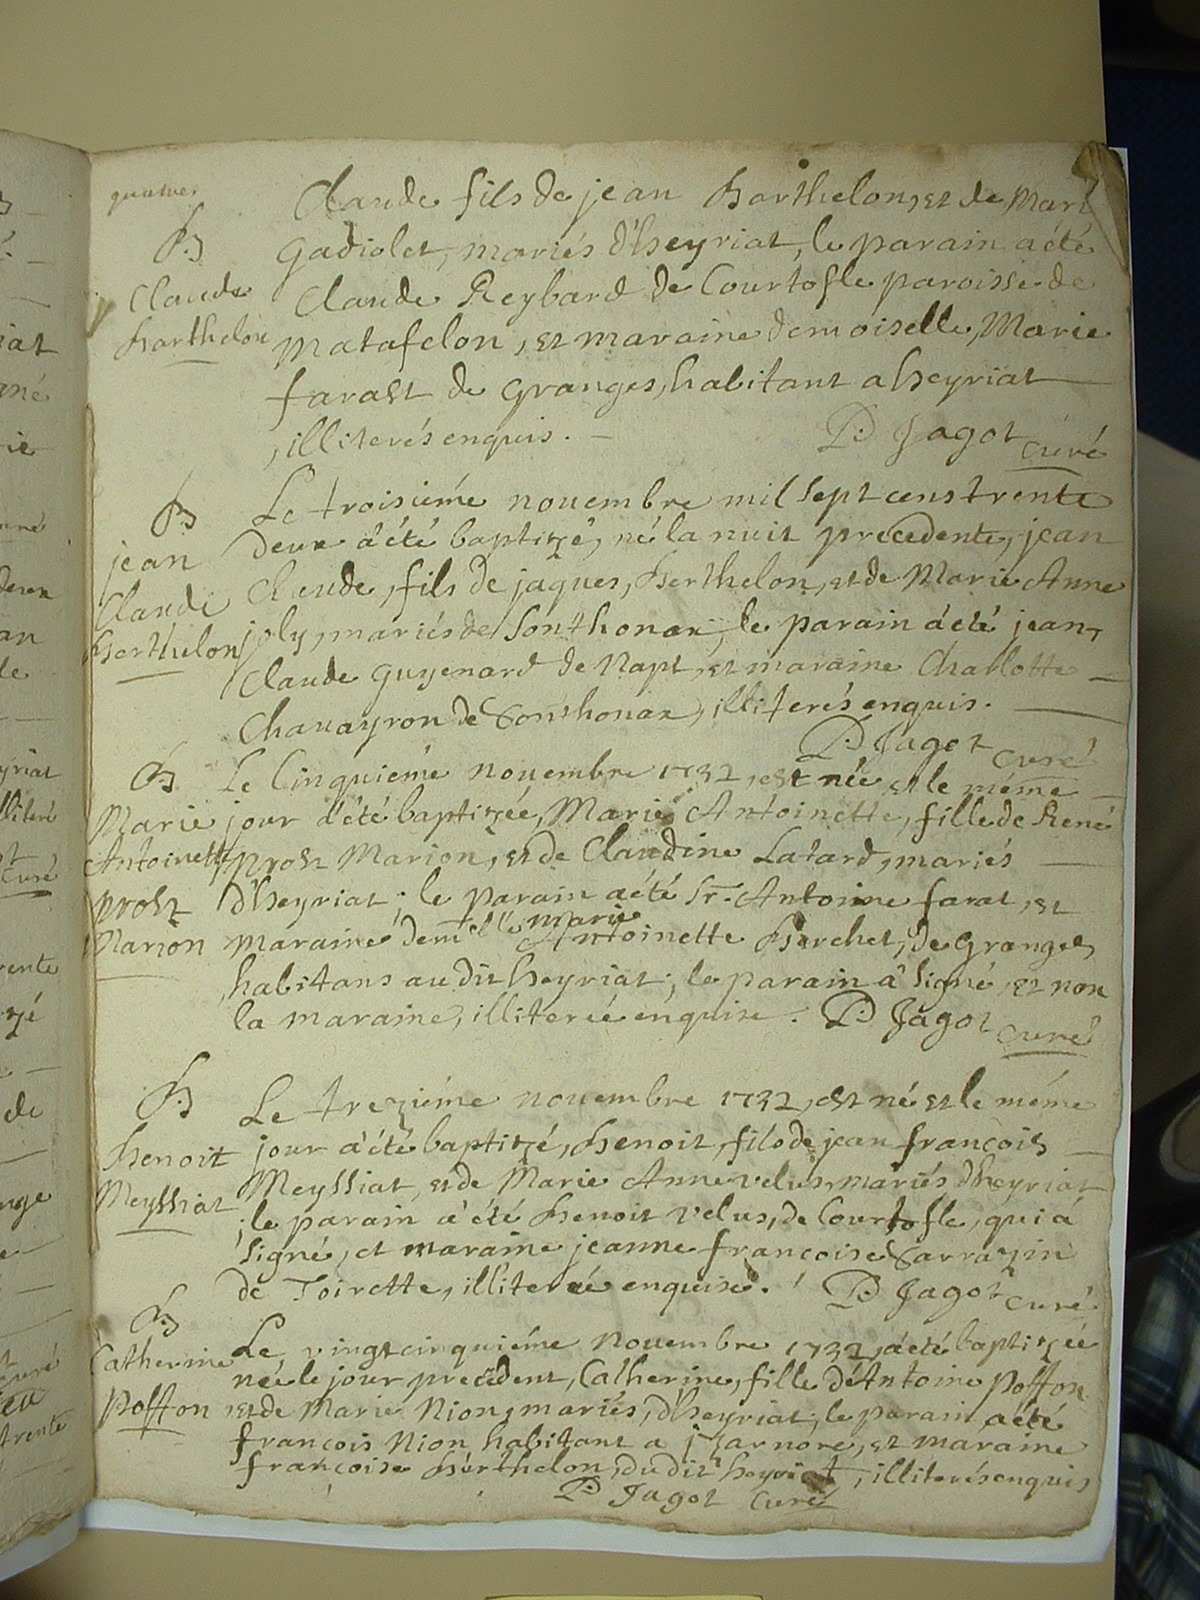 quatre
B
Claude
Berthelon
Claude fils de jean Berthelon, et de Mari
Gadiolet, mariés d'heyriat, le parain a été
Claude Reybard de Courtofle paroisse de
Matafelon, et maraine demoiselle, Marie
farast de Granges, habitant a heyriat
, illiterés enquis.
P. Jagot curé
B
jean
Claude
Berthelon
Le troisiéme nouembre mil sept cens trente
deux a été baptizé, né la nuit precedente, jean
Claude, fils de jaques, Berthelon, et de Marie Anne
joly, mariés de Sonthonax, le parain a été jean,
Claude guyenard de Napt, et maraine Charlotte
Chauayron de Sonthonax, illiterés enquis.
P. Jagot curé
B
Marie
Antoinette
prost
Marion
Le Cinquiéme nouembre 1732, est née et le méme
jour a été baptizée, Marie Antoinette, fille de René
prost Marion, et de Claudine Latard, mariés
d'heyriat; le parain a été Sr. Antoine farat, et
maraine demelle marie Antoinette Berchet, de Granges,
habitans audit heyriat; le parain a signé, et non
la maraine, illiterée enquise. P. Jagot curé
B
Benoit
Meyssiat
Le treziéme nouembre 1732, est né et le méme
jour a été baptizé, Benoit, fils de jean françois
Meyssiat, et de Marie Anne velus, mariés d'heyriat
; le parain a été Benoit velus, de Courtofle, qui a
signé, et maraine jeanne francoise Sarrazin
de Toirette, illiterée enquise. P. Jagot curé
B
Catherine
Poffon
Le vingtcinquiéme nouembre 1732, a été baptizée
née le jour precedent, Catherine, fille d'Antoine Poffon
et de Marie Nion, mariés, d'heyriat, le parain a été
françois Nion habitant a jzarnore, et maraine
françoise Berthelon, dudit heyriat, illiterés enquis
P. Jagot curé